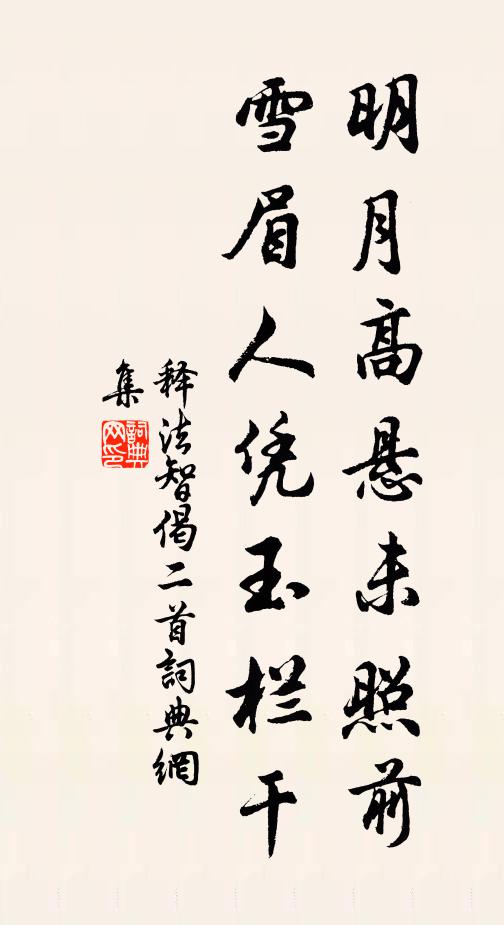 明月高悬未照前
雪眉人凭玉栏干
释法智偈二首詞典網
集
詞典
网印